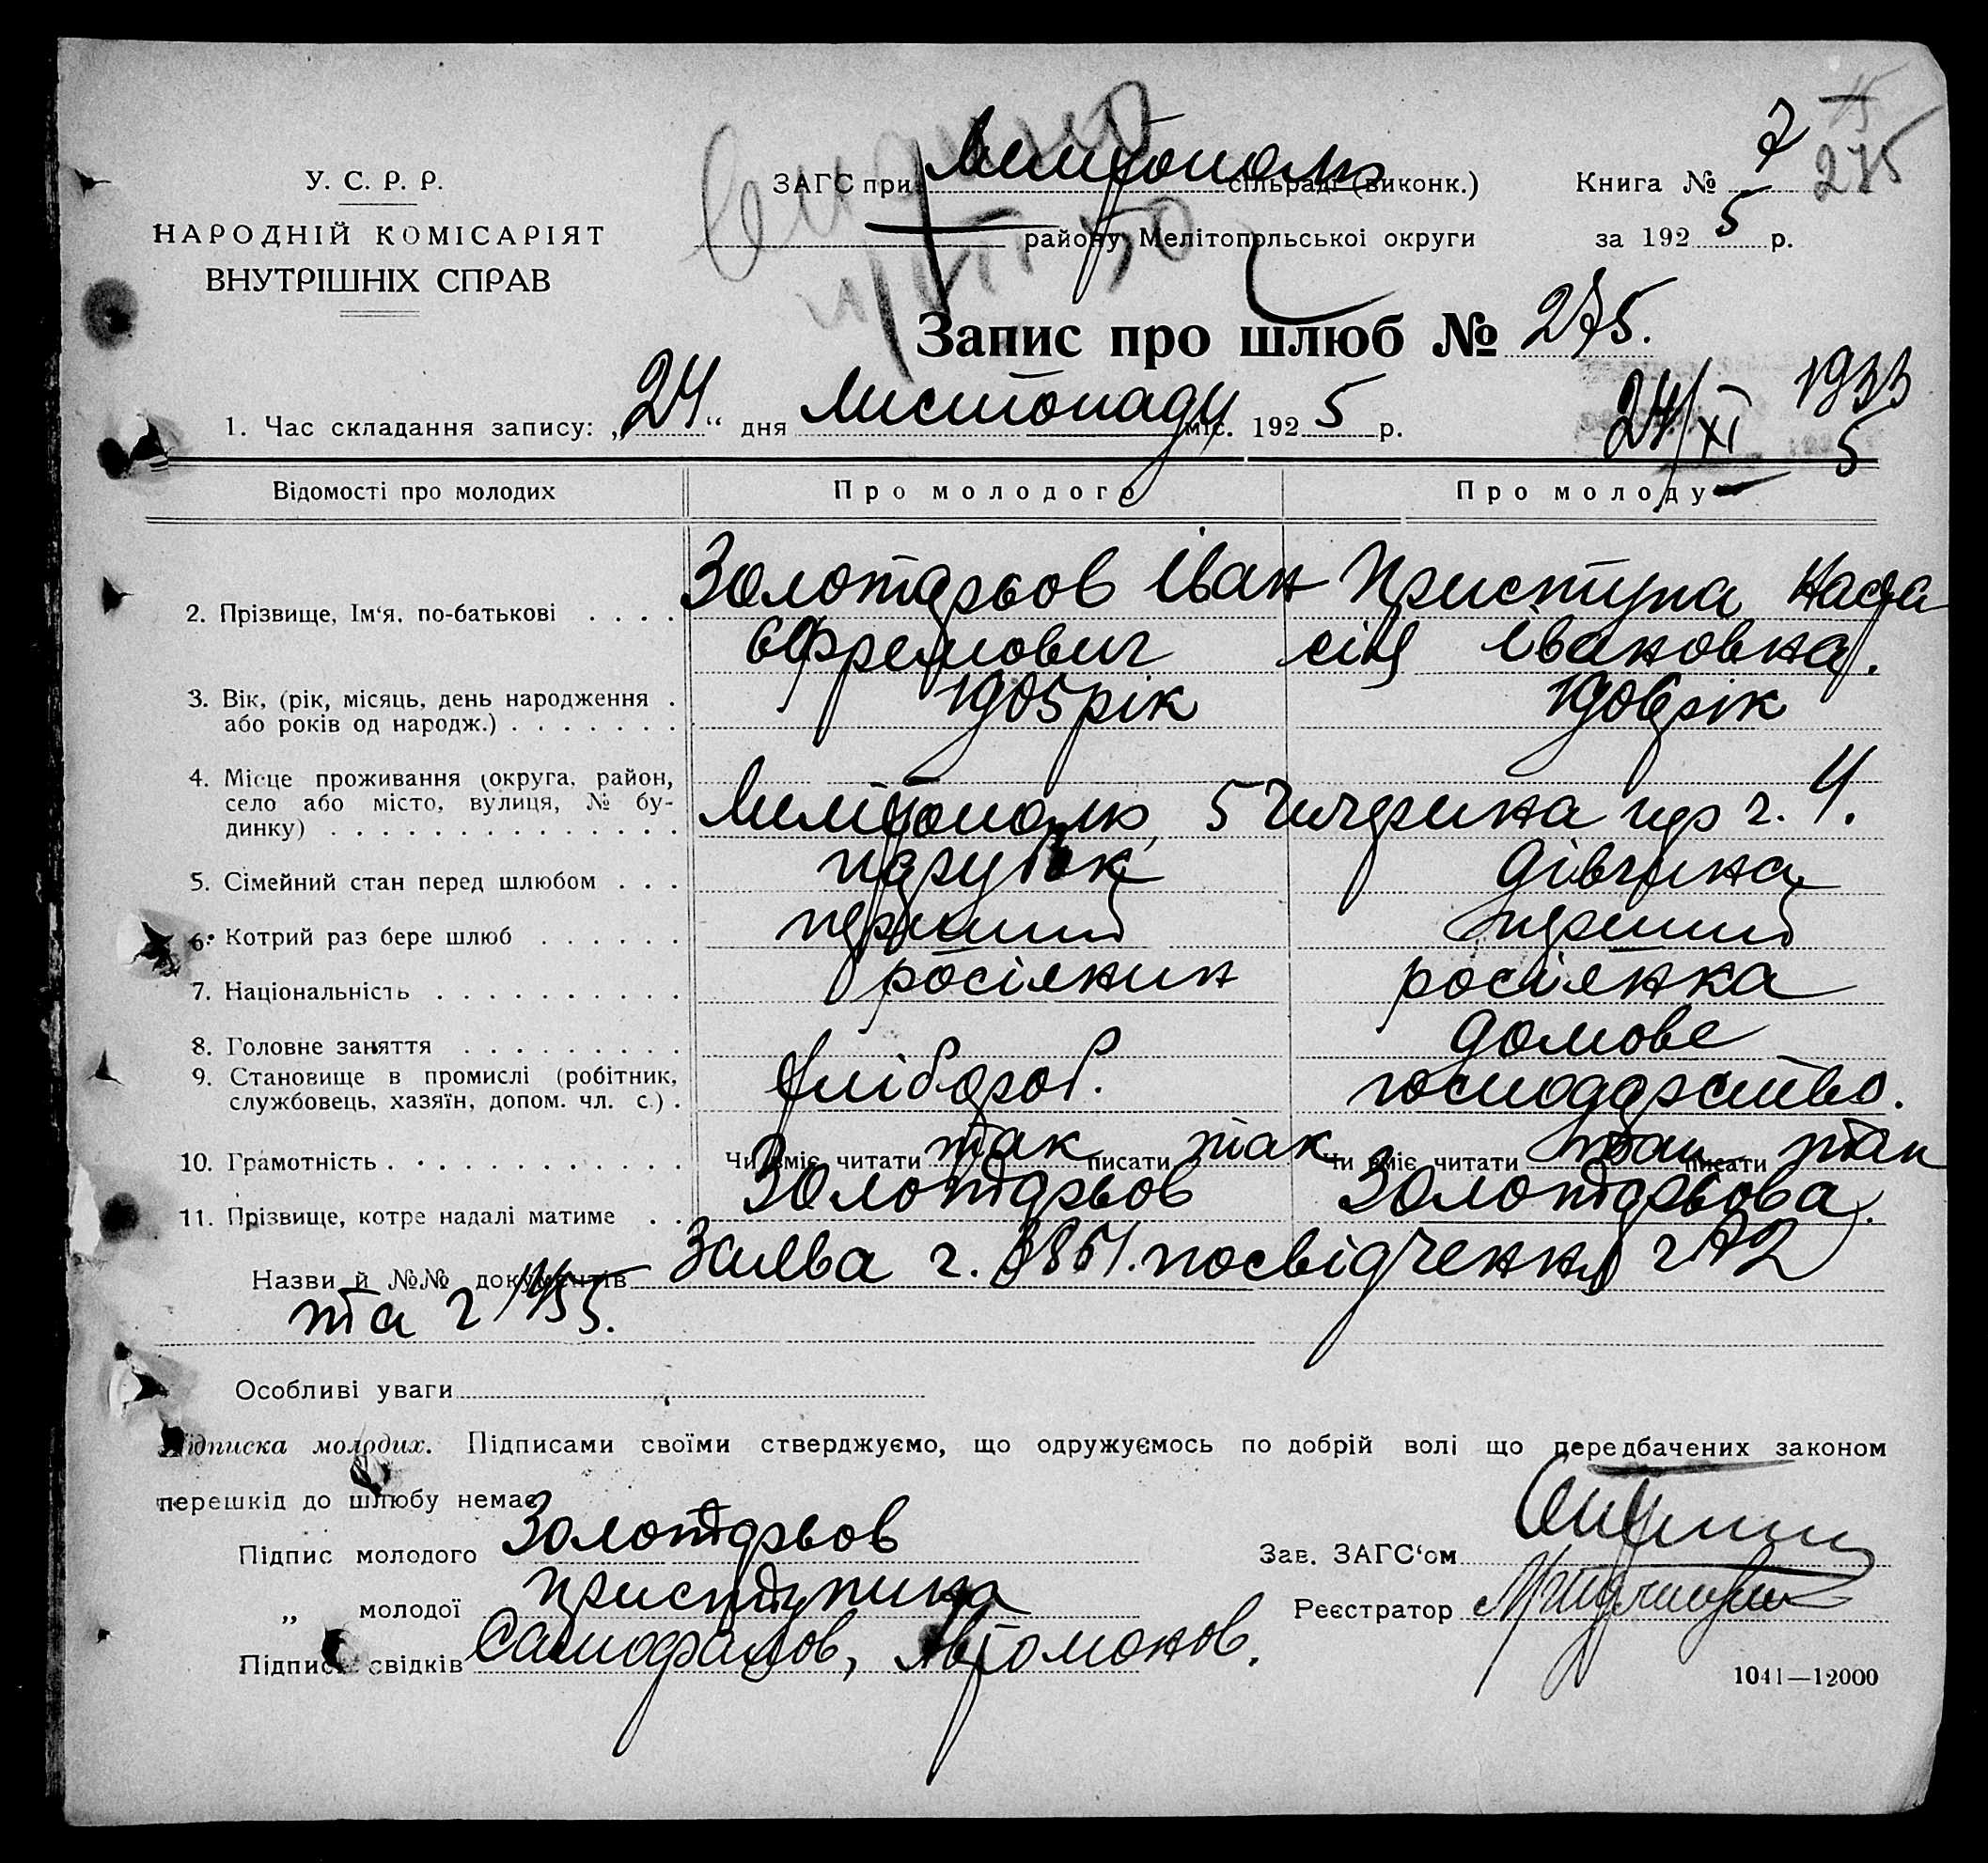 У. С. Р. Р.
НАРОДНІЙ КОМІСАРІЯТ
ВНУТРІШНІХ СПРАВ
ЗАГС при Мелітополь сільраді (виконк.) Книга № 7
275
району Мелітопольської округи за 1925 р.
Запис про шлюб № 275.
1. Час складання запису: „24“ дня Листопаду міс. 1925 р.
24/XI 1933
5
Відомості про молодих Про молодого Про молоду
2. Прізвище, Ім'я, по-батькові . . . . Золотарьов Іван Приступа Наста
Єфремович сія Івановна.
3. Вік, (рік, місяць, день народження . 1905 рік 1906 рік
або років од народж.) . . . . . . .
4. Місце проживання (округа, район,
село або місто, вулиця, № бу-
динку) . . . . . . . . . . . . . . Мелітополь, 5 Чичерина пер ч. 4.
5. Сімейний стан перед шлюбом . . . парубок дівчина
6. Котрий раз бере шлюб . . . . . . перший перший
7. Національність . . . . . . . . . . росіянин росіянка
8. Головне заняття . . . . . . . . . домове
9. Становище в промислі (робітник,
службовець, хазяїн, допом. чл. с.) . хлібороб. господарство.
10. Грамотність . . . . . . . . . . . . Чи вміє читати так писати так Чи вміє читати так писати так
11. Прізвище, котре надалі матиме . . Золотарьов Золотарьова.
Назви й №№ документів Заява ч. посвідчення ч
та ч
Особливі уваги
Підписка молодих. Підписами своїми стверджуємо, що одружуємось по добрій волі що передбачених законом
перешкід до шлюбу немає
Підпис молодого Золотарьов Зав. ЗАГС'ом
„ молодої Приступина Реєстратор
Підпис свідків Самофалов, Автомонов.
1041—12000